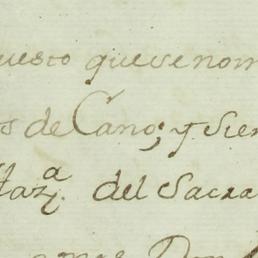 uesto quese nom
s de Cano; y sien
taz.ª del Sacra
Don